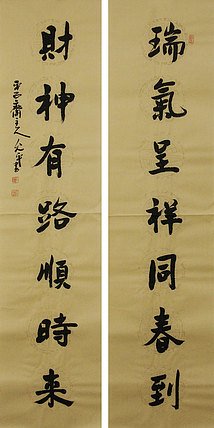 瑞氣呈祥同春到
財神有路順時来